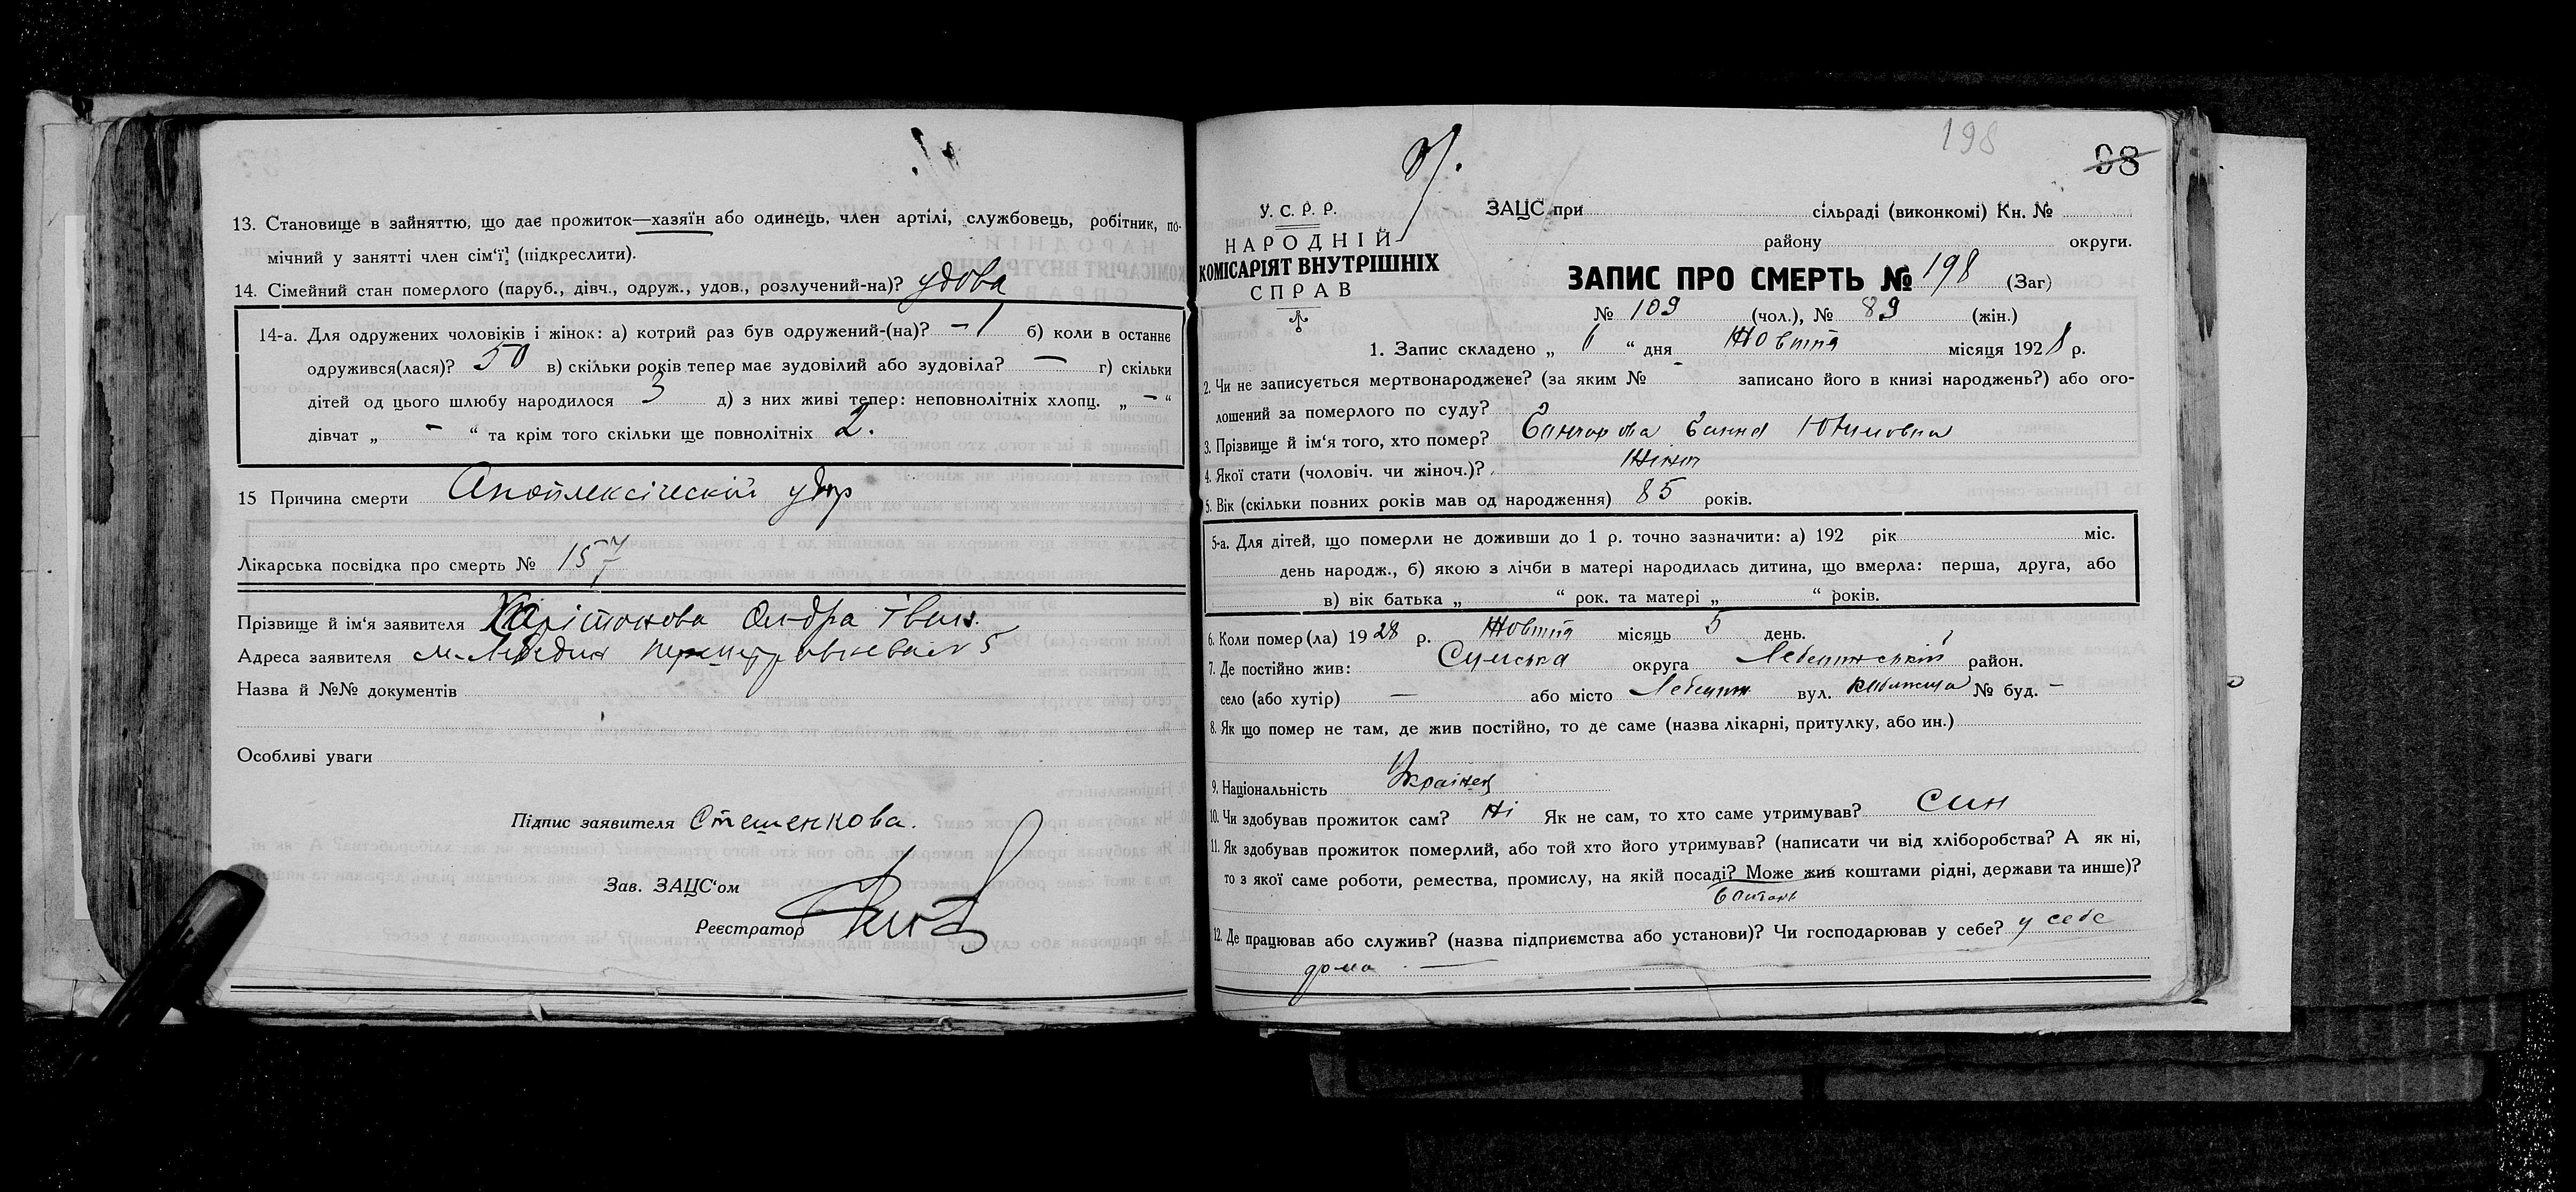 13. Становище в зайняттю, що дає прожиток—хазяїн або одинець, член артілі, службовець, робітник, по-
мічний у занятті член сім'ї (підкреслити).
14. Сімейний стан померлого (паруб., дівч., одруж., удов., розлучений-на)? удова
14-а. Для одружених чоловіків і жінок: а) котрий раз був одружений-(на)? – 1 б) коли в останнє
одружився(лася)? 50 в) скільки років тепер має зудовілий або зудовіла? — г) скільки
дітей од цього шлюбу народилося 3 д) з них живі тепер: неповнолітніх хлопц. „ — “
дівчат „ - “ та крім того скільки ще повнолітніх 2.
15 Причина смерти Апоплексіческій удар
Лікарська посвідка про смерть № 157
Прізвище й ім'я заявителя Харітонова Ол-дра Іван.
Адреса заявителя м. Лебедин 5
Назва й №№ документів
Особливі уваги
Підпис заявителя Стешенкова.
Зав. ЗАЦС'ом
Реєстратор
198
98
У. С. Р. Р.
НАРОДНІЙ
КОМІСАРІЯТ ВНУТРІШНІХ
СПРАВ
ЗАЦС при сільраді (виконкомі) Кн. №
району округи.
ЗАПИС ПРО СМЕРТЬ № 198 (Заг)
№ 109 (чол.), № 89 (жін.)
1. Запис складено „ 6 “ дня Жовтня місяця 1928 р.
2. Чи не записується мертвонароджене? (за яким № - записано його в книзі народжень?) або ого-
лошений за померлого по суду?
3. Прізвище й ім'я того, хто помер? Ганна Юхимовна
4. Якої стати (чоловіч. чи жіноч.)? Жіноч
5. Вік (скільки повних років мав од народження) 85 років.
5-а. Для дітей, що померли не доживши до 1 р. точно зазначити: а) 192 рік міс.
день народж., б) якою з лічби в матері народилась дитина, що вмерла: перша, друга, або
в) вік батька „ “ рок. та матері „ “ років.
6. Коли помер(ла) 1928 р. Жовтня місяць 5 день.
7. Де постійно жив: Сумська округа Лебединській район.
село (або хутір) — або місто Лебедин вул. № буд. —
8. Як що помер не там, де жив постійно, то де саме (назва лікарні, притулку, або ин.)
9. Національність Українец
10. Чи здобував прожиток сам? Ні Як не сам, то хто саме утримував? Син
11. Як здобував прожиток померлий, або той хто його утримував? (написати чи від хліборобства? А як ні,
то з якої саме роботи, ремества, промислу, на якій посаді? Може жив коштами рідні, держави та инше)?
12. Де працював або служив? (назва підприємства або установи)? Чи господарював у себе? у себе
дома —